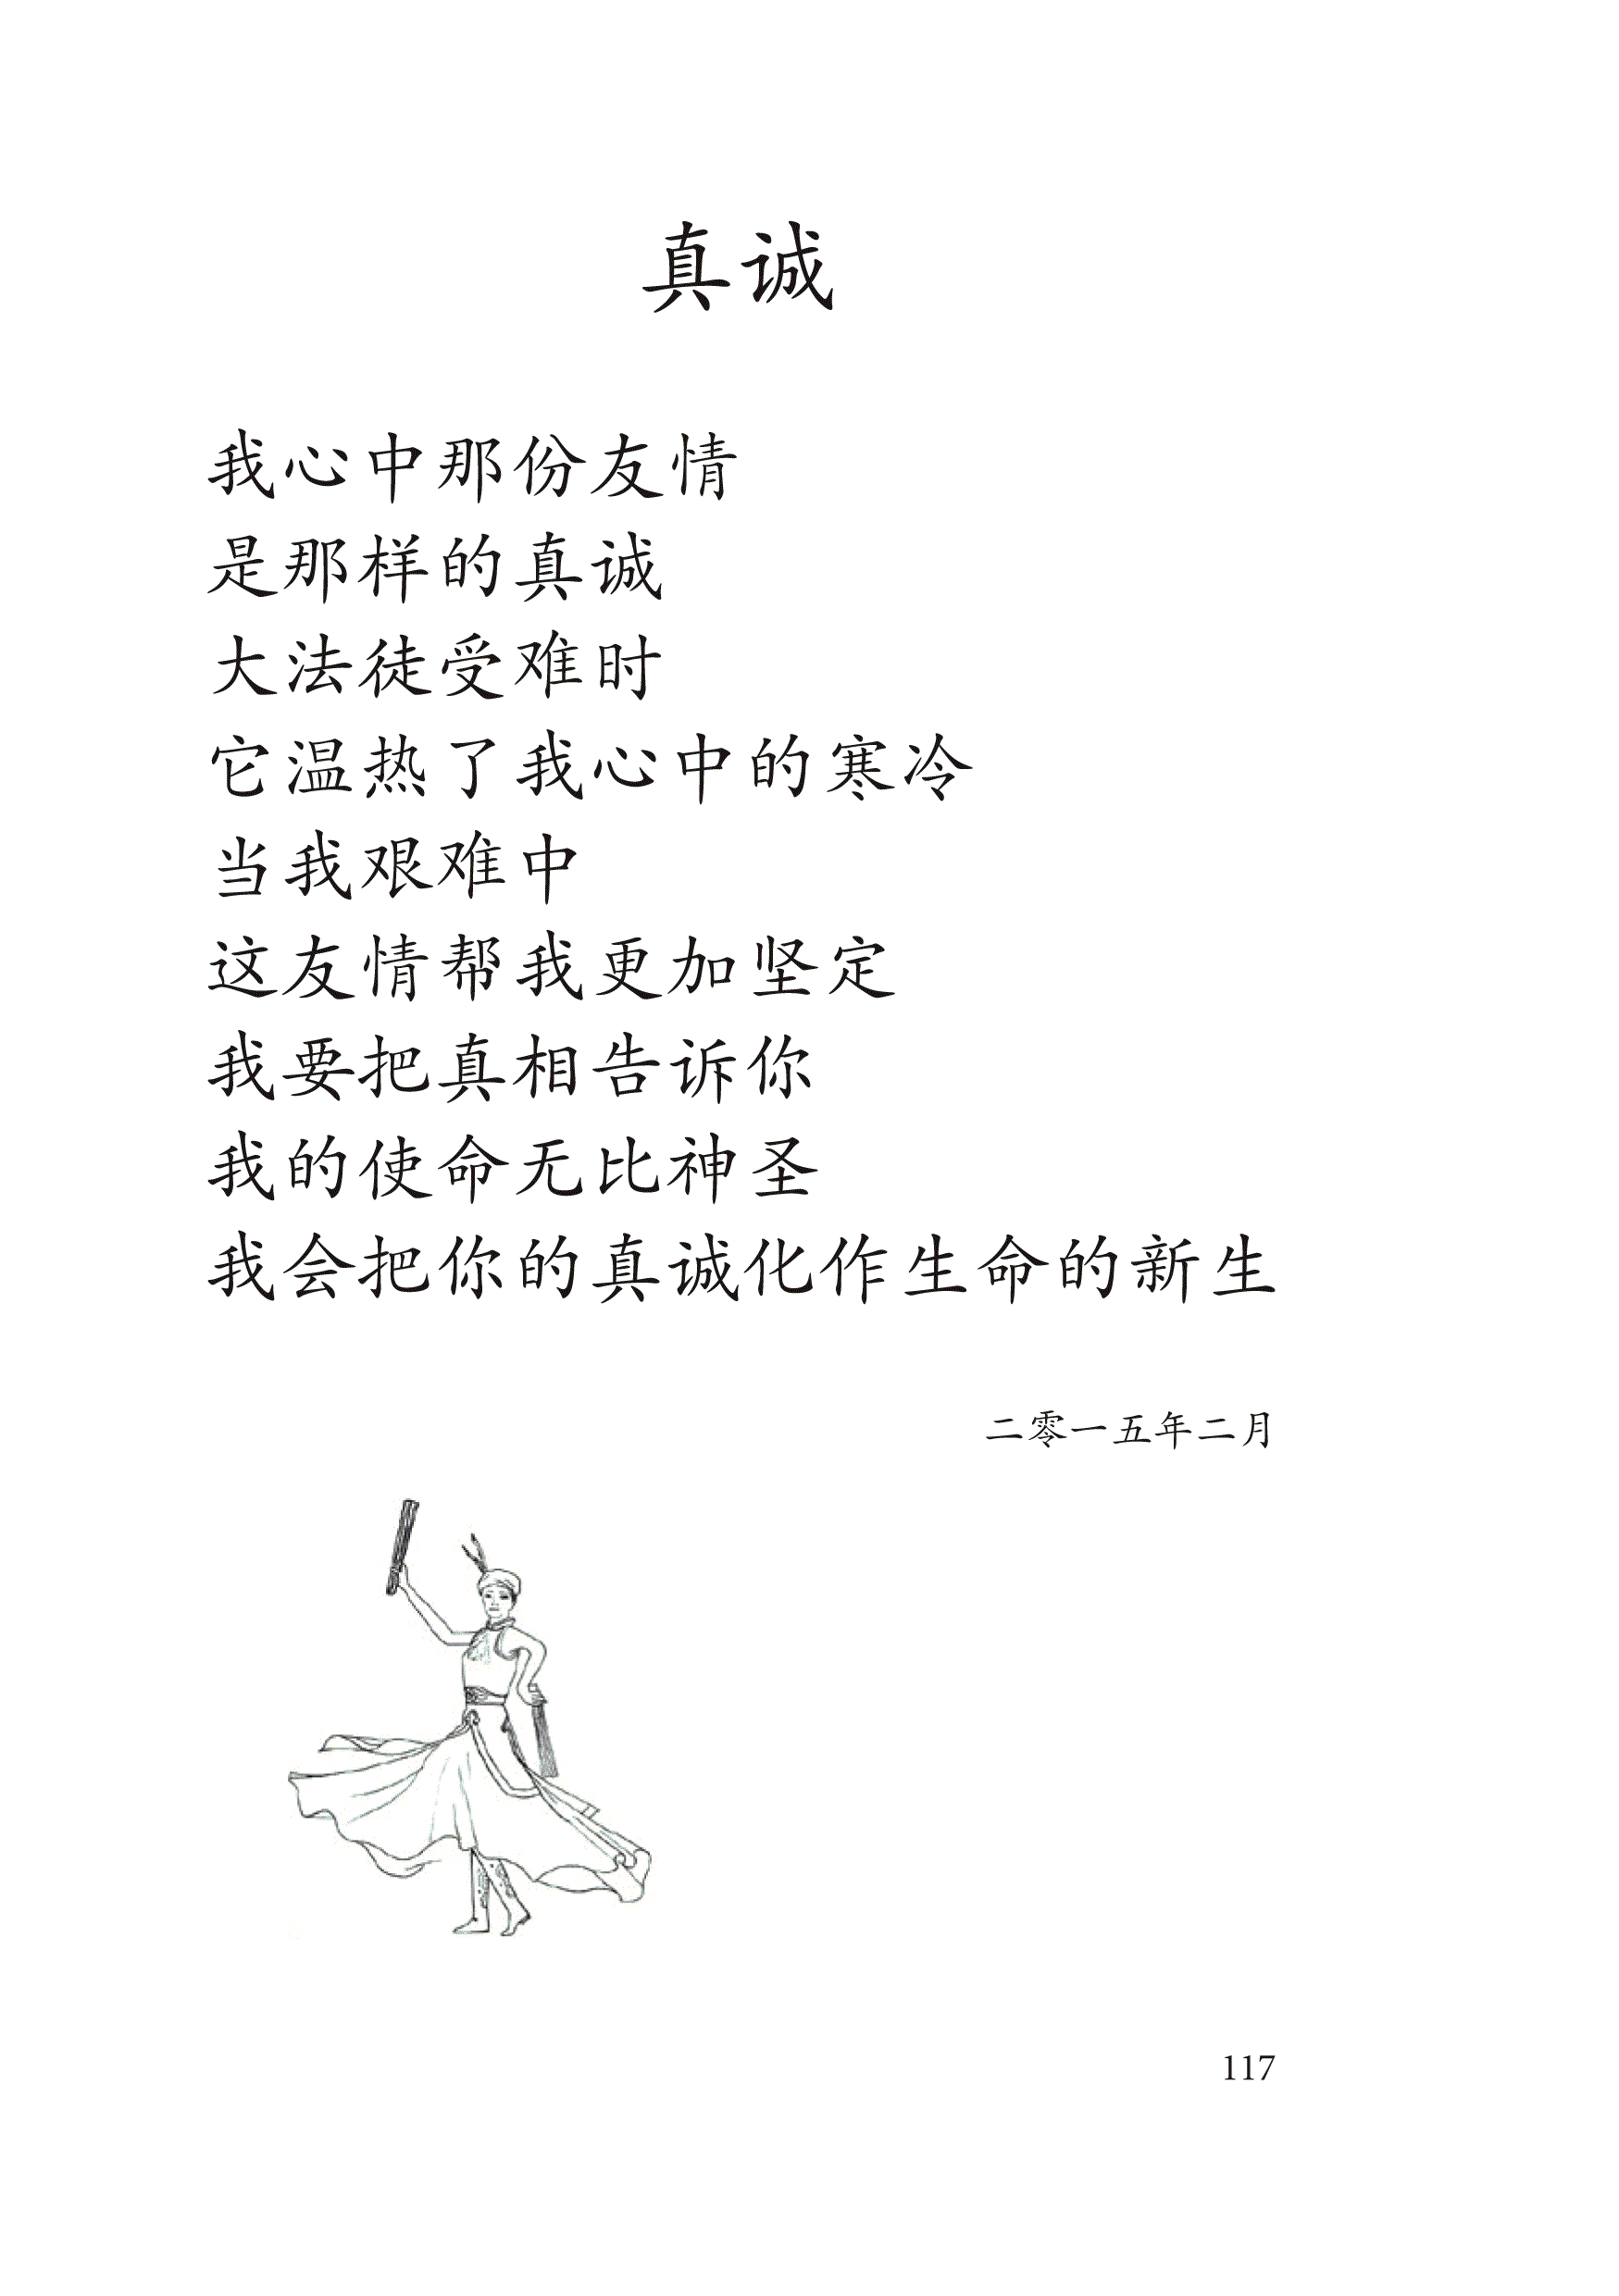 真诚
我心中那份友情
是那样的真诚
大法徒受难时
它温热了我心中的寒冷
当我艰难中
这友情帮我更加坚定
我要把真相告诉你
我的使命无比神圣
我会把你的真诚化作生命的新生
二零一五年二月
117